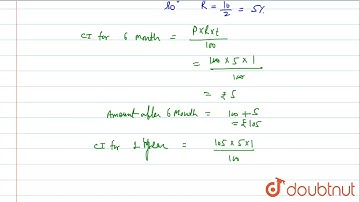 R = 10/2 = 5%
CI for 6 month = P×R×t/100
= 100 × 5 × 1/100
= ₹ 5
Amount after 6 Month = 100 + 5
= ₹105
CI for 1 Year = 105 × 5 × 1/100
doubtnut